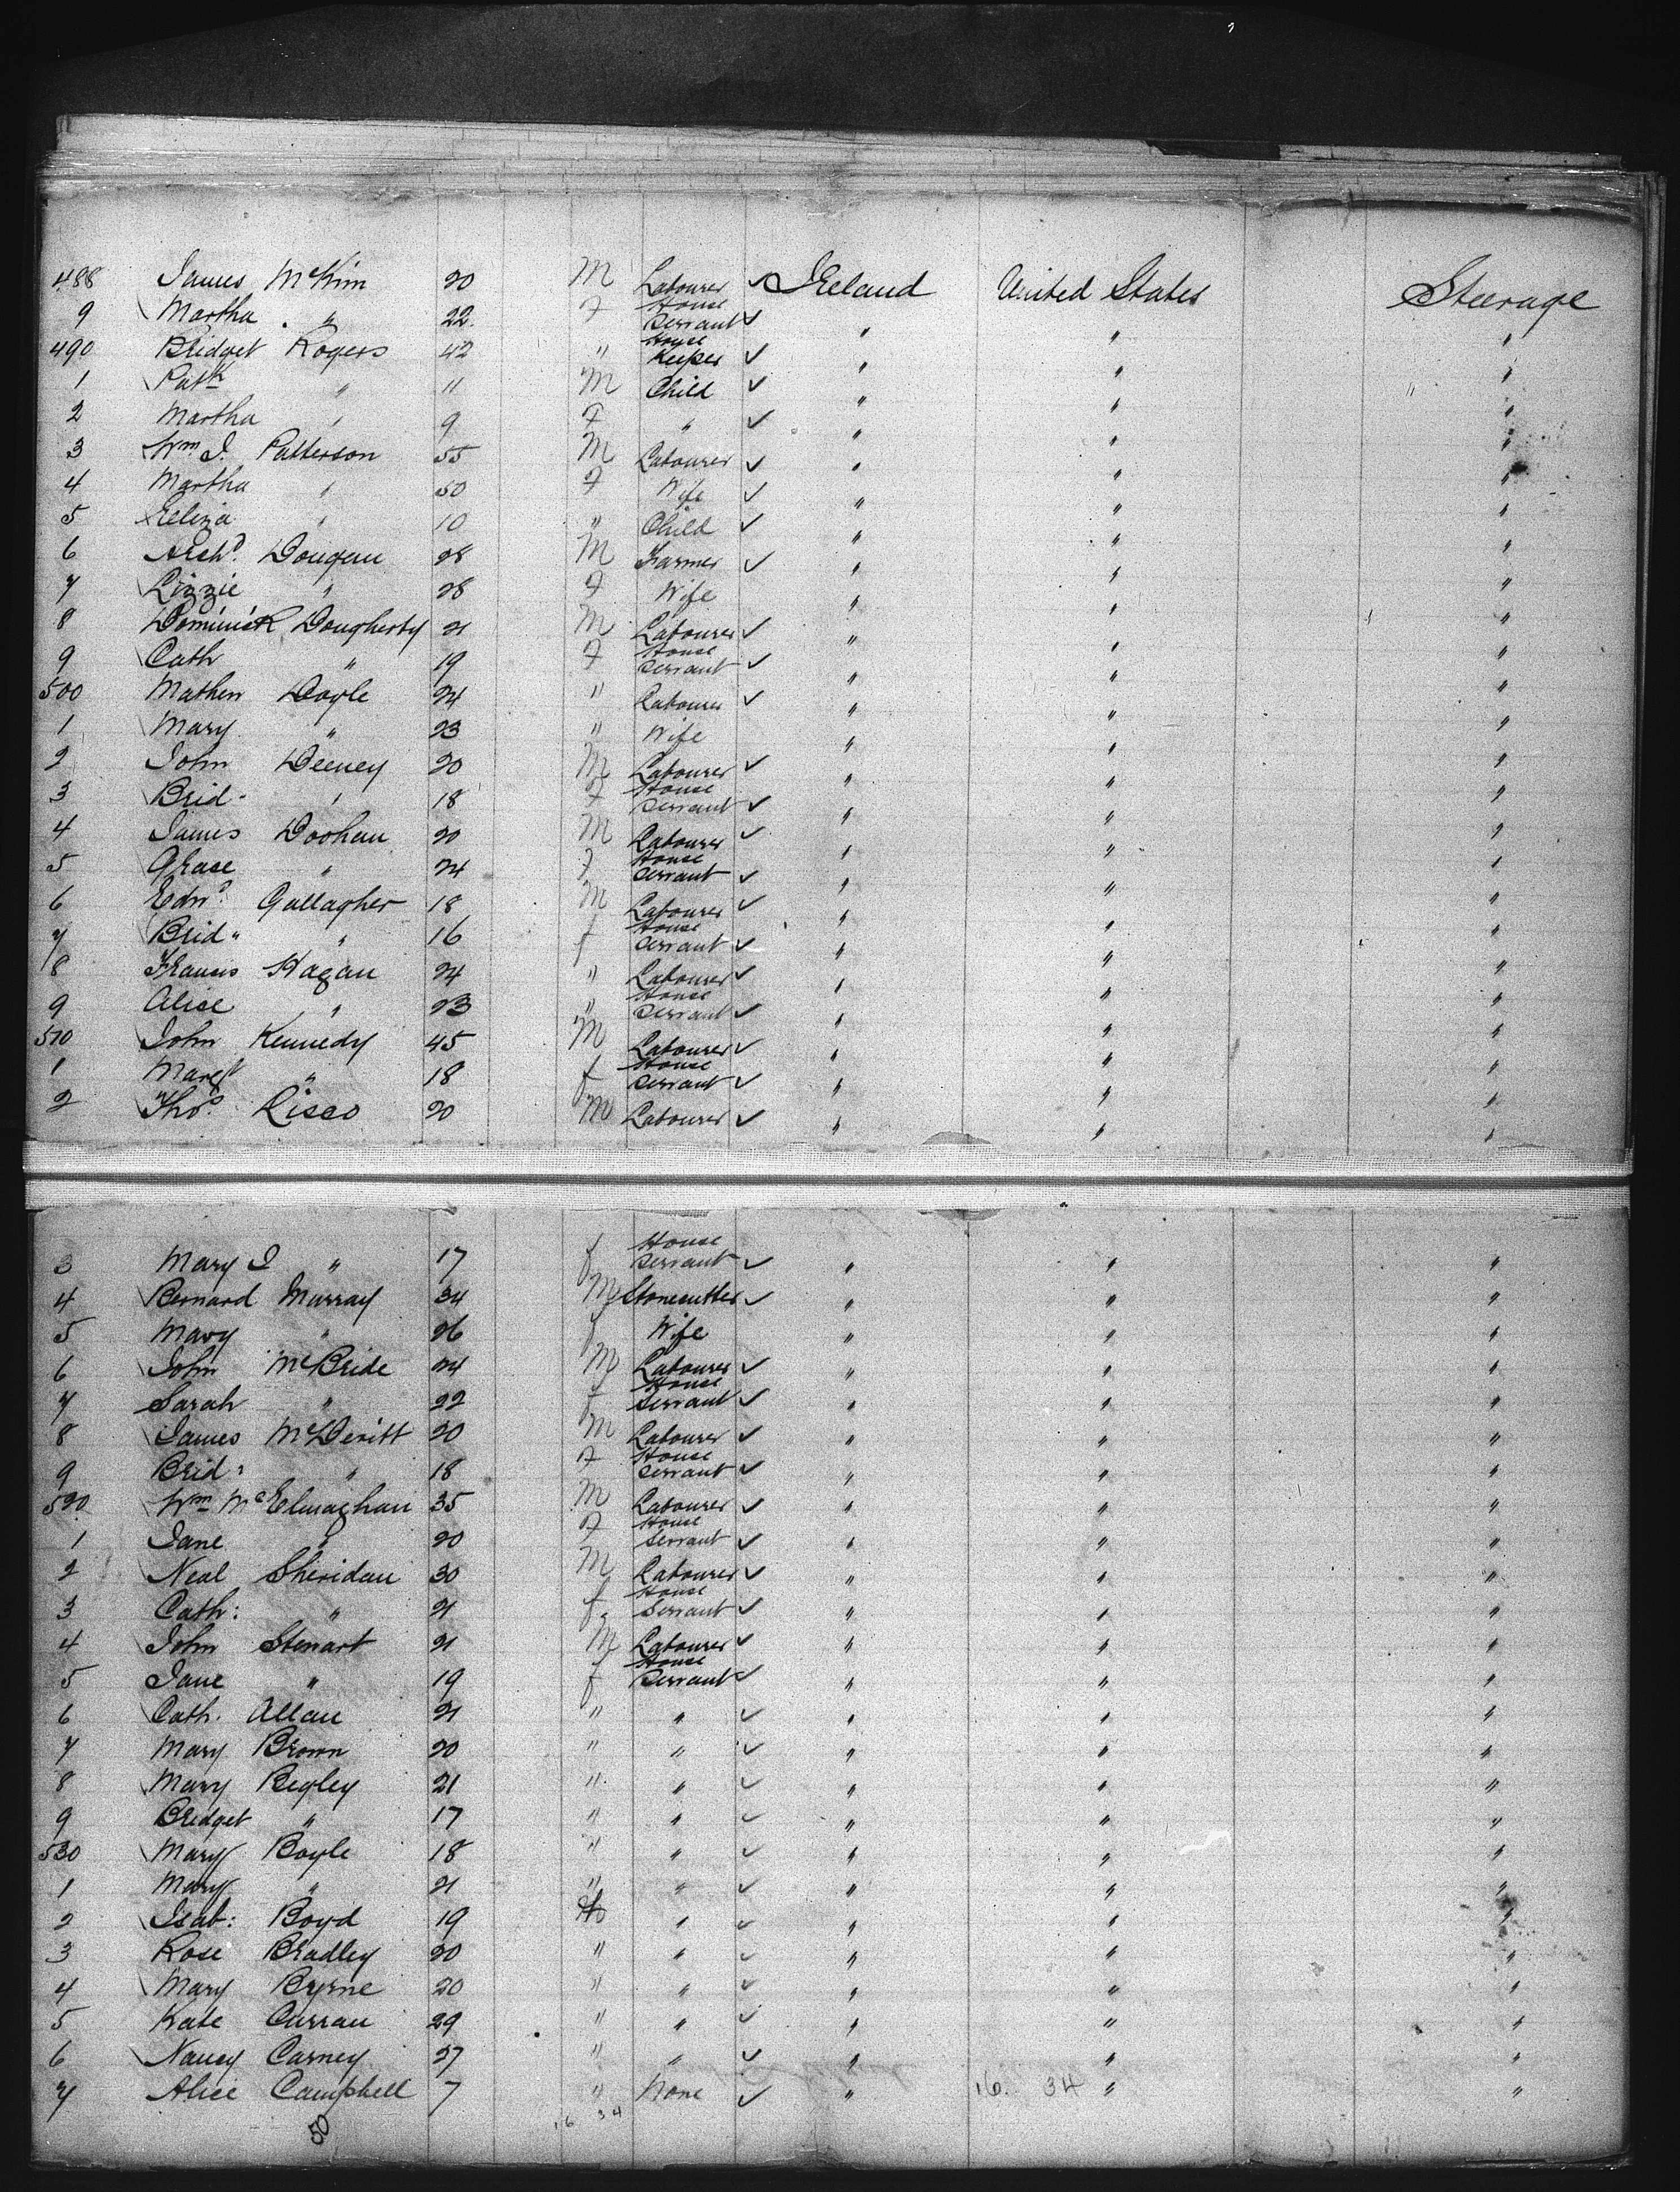 488 James McKim 20 M Labourer ✓ Ireland United States Steerage
9 Martha " 22 F House Servant ✓ " " "
490 Bridget Rogers 42 " House Keeper ✓ " " "
1 Patk " 11 M Child ✓ " " "
2 Martha " 9 F " ✓ " " "
3 Wm J. Patterson 55 M Labourer ✓ " " "
4 Martha " 50 F Wife ✓ " " "
5 Eeliza " 10 " Child ✓ " " "
6 Archd. Dougan 28 M Farmer ✓ " " "
7 Lizzie " 28 F Wife " " "
8 Dominick Dougherty 21 M Labourer ✓ " " "
9 Cath " 19 F House Servant ✓ " " "
500 Mathew Doyle 24 " Labourer ✓ " " "
1 Mary " 23 " Wife " " "
2 John Deeney 20 M Labourer ✓ " " "
3 Brid. " 18 F House Servant ✓ " " "
4 James Doohan 20 M Labourer ✓ " " "
5 Grace " 24 F House Servant ✓ " " "
6 Edwd. Gallagher 18 M Labourer ✓ " " "
7 Brid " " 16 f House Servant ✓ " " "
8 Francis Hagan 24 " Labourer ✓ " " "
9 Alice " 23 " House Servant ✓ " " "
510 John Kennedy 45 M Labourer ✓ " " "
1 Margt " 18 f House Servant ✓ " " "
2 Thos. Risco 20 M Labourer ✓ " " "
3 Mary J " 17 f House Servant ✓ " " "
4 Bernard Murray 34 M Stonecutter ✓ " " "
5 Mary " 26 f Wife " " "
6 John McBride 24 M Labourer ✓ " " "
7 Sarah " 22 f House Servant ✓ " " "
8 James McDevitt 20 M Labourer ✓ " " "
9 Brid: " 18 F House Servant ✓ " " "
520 Wm McElmaghan 35 M Labourer ✓ " " "
1 Jane " 20 F House Servant ✓ " " "
2 Neal Sheridan 30 M Labourer ✓ " " "
3 Cath: " 21 f. House Servant ✓ " " "
4 John Stewart 21 M Labourer ✓ " " "
5 Jane " 19 f House Servant ✓ " " "
6 Cath. Allan 21 " " ✓ " " "
7 Mary Brown 20 " " ✓ " " "
8 Mary Begley 21 " " ✓ " " "
9 Bridget " 17 " " ✓ " " "
530 Mary Boyle 18 " " ✓ " " "
1 Mary " 21 " " ✓ " " "
2 Isab: Boyd 19 " ✓ " " "
3 Rose Bradley 20 " " ✓ " " "
4 Mary Byrne 20 " " ✓ " " "
5 Kate Curran 29 " " ✓ " " "
6 Nancy Carney 27 " " ✓ " " "
7 Alice Campbell 7 " None ✓ " 16. 34 " "
50 16 34